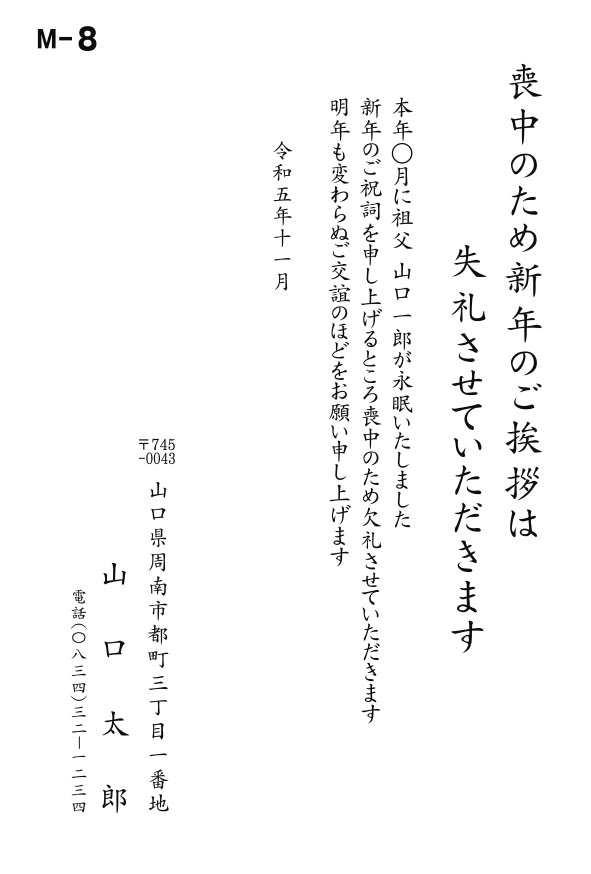 M-8
喪中のため新年のご挨拶は
失礼させていただきます
本年〇月に祖父 山口一郎が永眠いたしました
新年のご祝詞を申し上げるところ喪中のため欠礼させていただきます
明年も変わらぬご交誼のほどをお願い申し上げます
令和五年十一月
〒745
-0043
山口県周南市都町三丁目一番地
山口太郎
電話(〇八三四)三二―一二三四